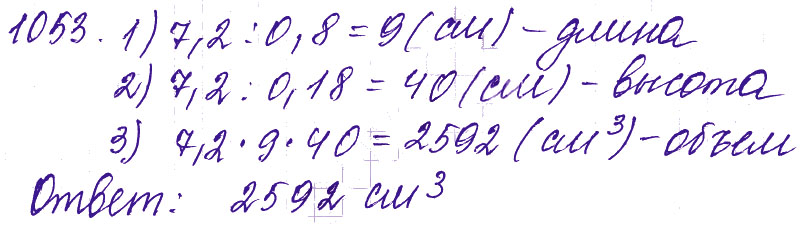 1053. 1) 7,2 : 0,8 = 9 (см) – длина
2) 7,2 : 0,18 = 40 (см) – высота
3) 7,2 · 9 · 40 = 2592 (см³) – объем
Ответ: 2592 см³